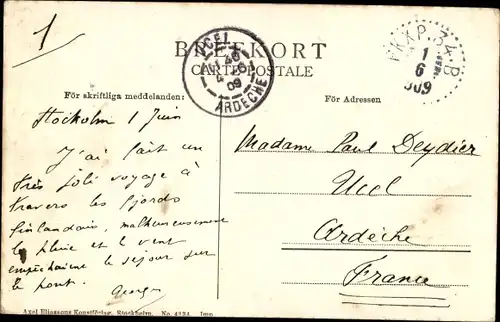 1
BREFKORT
CARTE POSTALE
UCEL
ARDÈCHE
09
PKXP. 34. B
1
6
909
För skriftliga meddelanden:
För Adressen
Stockolm 1 Juin
J'ai fait un
très joli voyage à
travers les fjords
finlandais, malheureusement
la pluie et le vent
empêchaient le séjour sur
le pont.
Georges
Madame Paul Deydier
Ucel
Ardèche
France
Axel Eliassons Konstförlag, Stockholm. No. 4134 Imp.